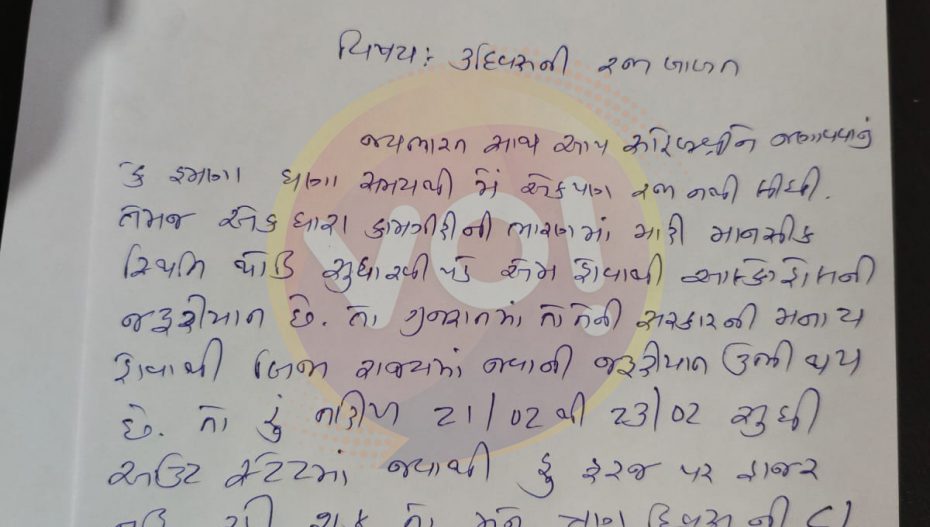 વિષય: ૩ દિવસની રજા બાબત
જયભારત સાથ આપ સાહેબશ્રીને જણાવવાનું
કે હમણા ઘણા સમયથી મેં એકપણ રજા નથી લીધી.
તેમજ એક ધારા કામગીરીની ભારણમાં, મારી માનસીક
સ્થિતિ થોડિ સુધારવી પડે એમ હોવાથી આલ્કોહોલની
જરૂરીયાત છે. તો ગુજરાતમાં તો તેની સરકારની મનાય
હોવાથી બિજા રાજ્યમાં જવાની જરૂરીયાત ઉભી થય
છે. તો હું તારીખ 21/02 થી 23/02 સુધી
આઉટ સ્ટેટમાં જવાથી હું ફરજ પર હાજર
YO!